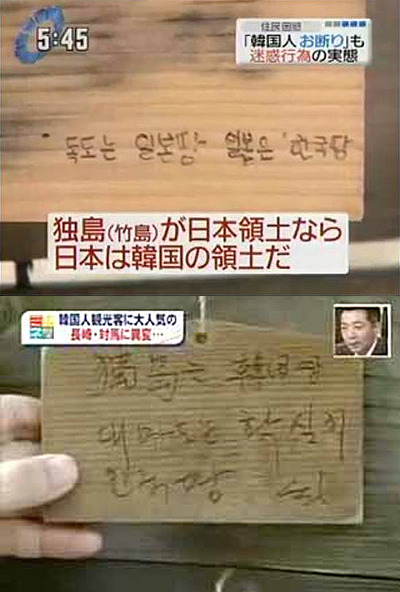 5:45
住民困惑
「韓国人 お断り」も
迷惑行為の実態
독도는 일본땅 일본은 한국땅
独島(竹島)が日本領土なら
日本は韓国の領土だ
韓国人観光客に大人気の
長崎・対馬に異変…
獨島는 韓国땅
대마도는 확실히